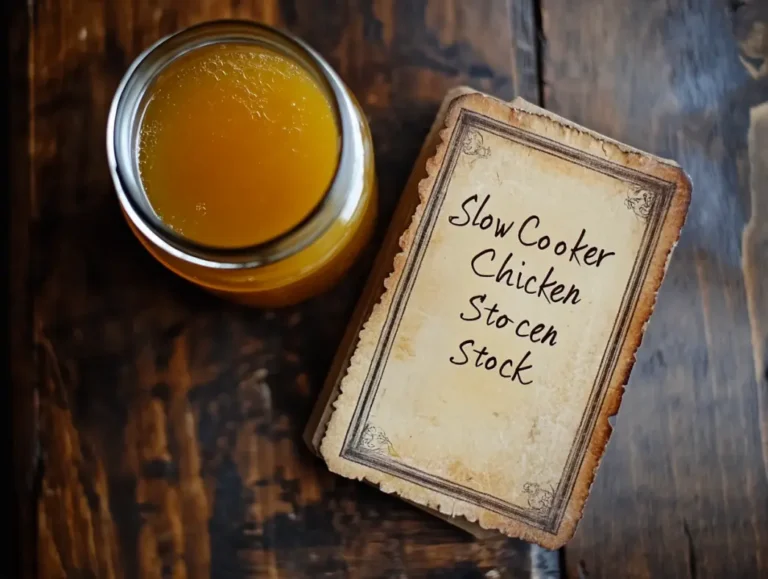 Slow Cooker
Chicken
Stocen
Stock